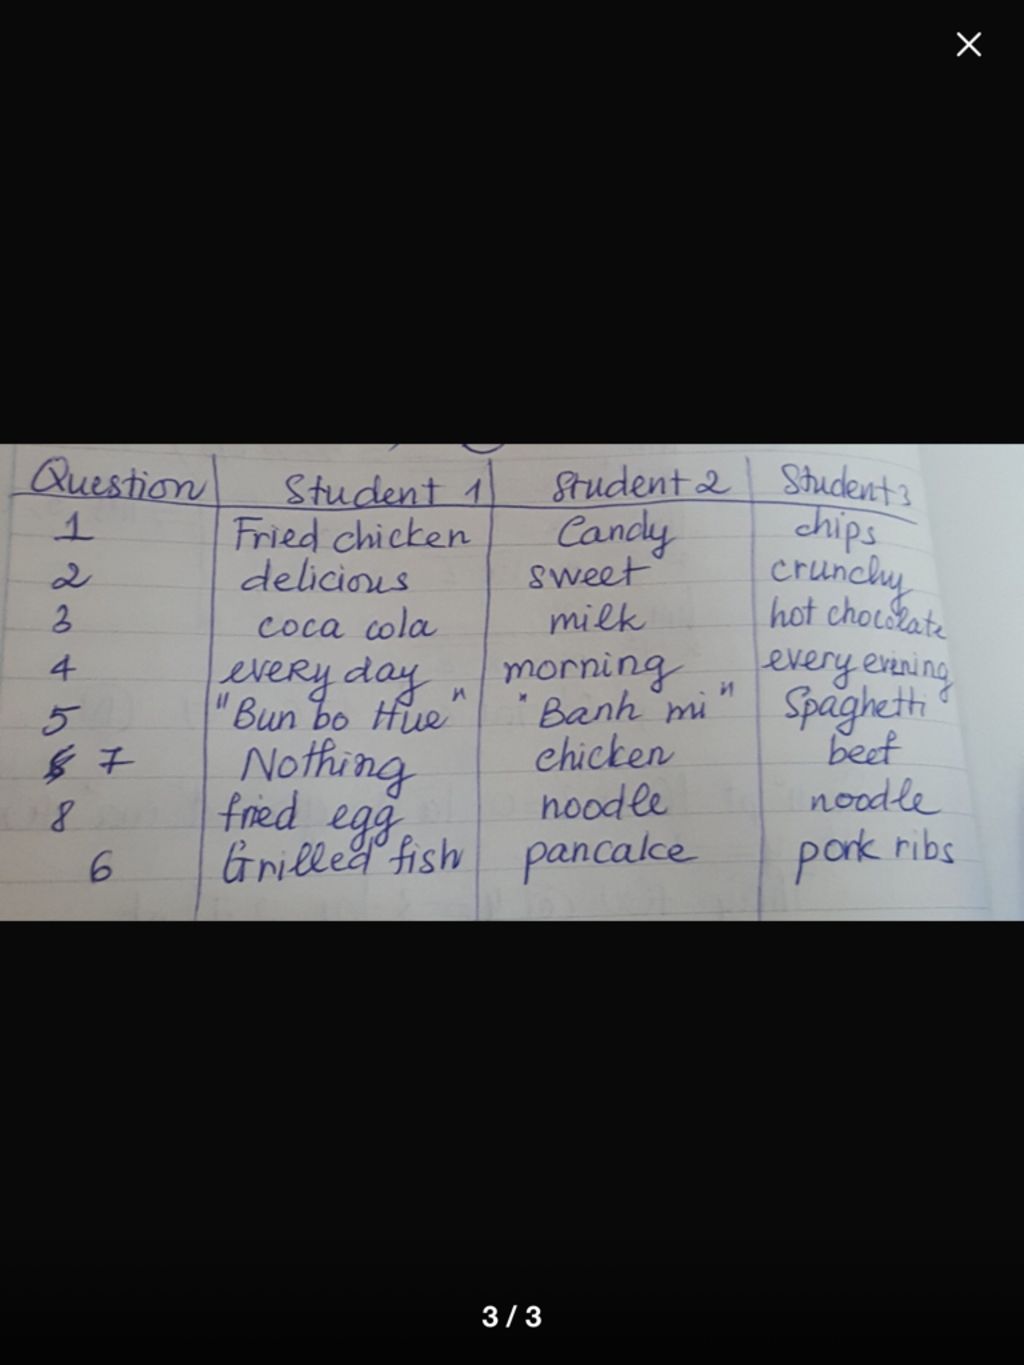 Question Student 1 Student 2 Student 3
1 Fried chicken Candy chips
2 delicious sweet crunchy
3 coca cola milk hot chocolate
4 every day morning every evening
5 "Bun bo Hue" "Banh mi" Spaghetti
7 Nothing chicken beef
8 fried egg noodle noodle
6 Grilled fish pancake pork ribs
3 / 3